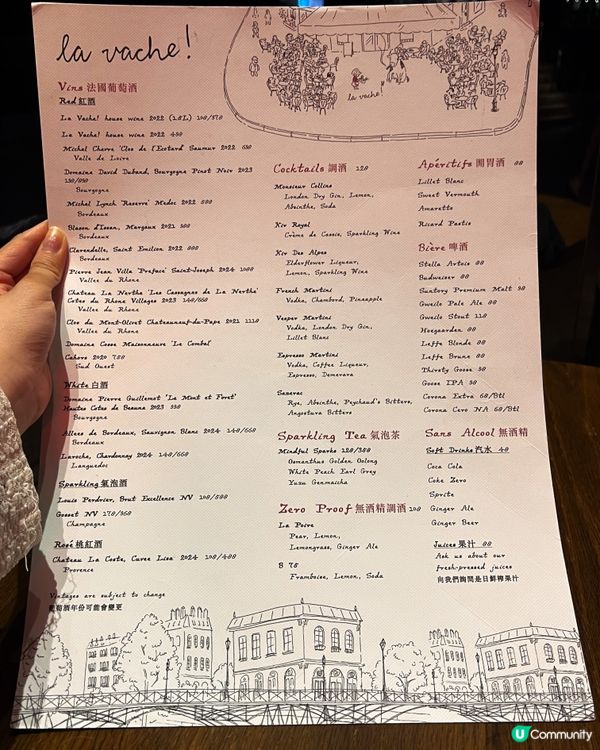 la vache!
la vache!
Vins 法國葡萄酒
Red 紅酒
La Vache! house wine 2022
La Vache! house wine 2022
Michel Chevre 'Clos de l'Ecotard' Saumur 2022
Valle de Loire
Domaine David Duband, Bourgogne Pinot Noir 2023
Bourgogne
Michel Lynch 'Reserve' Medoc 2022
Bordeaux
Blason d'Issan, Margaux 2021
Bordeaux
Clarendelle, Saint Emilion 2022
Bordeaux
Pierre Jean Villa 'Preface' Saint-Joseph 2024
Vallee du Rhone
Chateau La Nerthe 'Les Cassagnes de La Nerthe'
Cotes du Rhone Villages 2023
Vallee du Rhone
Clos du Mont-Olivet Chateauneuf-du-Pape 2021 1110
Vallee du Rhone
Domaine Cosse Maisonneuve 'La Combal'
Cahors 2020
Sud Ouest
White 白酒
Domaine Pierre Guillemot 'Le Mont et Foret'
Hautes Cotes de Beaune 2023
Bourgogne
Allees de Bordeaux, Sauvignon Blanc 2024
Bordeaux
Laroche, Chardonnay 2024
Languedoc
Sparkling 氣泡酒
Louis Perdrier, Brut Excellence NV
Gosset NV
Champagne
Rosé 桃紅酒
Chateau La Coste, Cuvee Lisa 2024
Provence
Vintages are subject to change
葡萄酒年份可能會變更
Cocktails 調酒
Monsieur Collins
London Dry Gin, Lemon,
Absinthe, Soda
Kir Royal
Crème de Cassis, Sparkling Wine
Kir Des Alpes
Elderflower Liqueur,
Lemon, Sparkling Wine
French Martini
Vodka, Chambord, Pineapple
Vesper Martini
Vodka, London Dry Gin,
Lillet Blanc
Espresso Martini
Vodka, Coffee Liqueur,
Espresso, Demerara
Sazerac
Rye, Absinthe, Peychaud's Bitters,
Angostura Bitters
Sparkling Tea 氣泡茶
Mindful Sparks
Osmanthus Golden Oolong
White Peach Earl Grey
Yuzu Genmaicha
Zero Proof 無酒精調酒
La Poire
Pear, Lemon,
Lemongrass, Ginger Ale
Framboise, Lemon, Soda
Apéritifs 開胃酒
Lillet Blanc
Sweet Vermouth
Amaretto
Ricard Pastis
Bière 啤酒
Stella Artois
Budweiser
Suntory Premium Malt
Gweilo Pale Ale
Gweilo Stout
Hoegaarden
Leffe Blonde
Leffe Brune
Thirsty Goose
Goose IPA
Corona Extra
Corona Cero NA
Sans Alcool 無酒精
Soft Drinks 汽水
Coca Cola
Coke Zero
Sprite
Ginger Ale
Ginger Beer
Juices 果汁
Ask us about our
fresh-pressed juices
向我們詢問是日鮮榨果汁
U Community